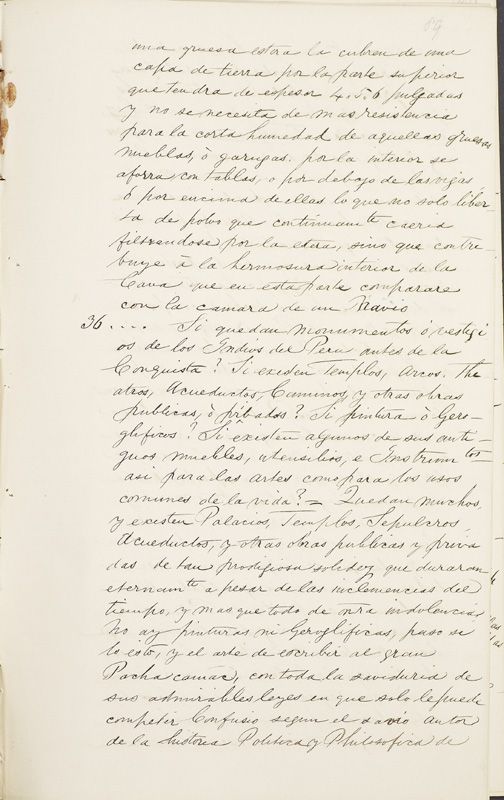 89
una gruesa estora la cubren de una
capa de tierra por la parte superior
que tendra de espesor 4. 5. 6 pulgadas
y no se necesita de mas resistencia
para la corta humedad de aquellas gruesas
nieblas, ò garugas. por la interior se
aforra con tablas, o por debajo de las vigas
ò por encima de ellas lo que no solo liber-
ta de polvo que continuamte caeria
filtrandose por la estera, sino que contri
buye à la hermosura interior de la
Cava que en esta parte comparare
con la camara de un Navio
36 .... Si quedan monumentos ó vestigi
os de los Indios del Peru antes de la
Conquista? Si existen Templos, Arcos. The
atros, Acueductos, Caminos, y otras obras
publicas, ò pribadas? Si pintura ò Gero-
glificos? Si existen algunos de sus anti-
guos muebles, utensilios, e Instrumtos
asi para las artes como para los usos
comunes de la vida? = Quedan muchos,
y existen Palacios, Templos, Sepulcros,
Acueductos, y otras obras publicas y priva
das de tan prodigiosa solidez que duraran
eternamte a pesar de las inclemencias del
tiempo, y mas que todo de ntra indolencia
No ay pinturas ni Geroglificas, paso se
lo esto, y el arte de escribir al gran
Pacha camac, con toda la saviduria de
sus admirables leyes en que solo le puede
competir Confusio segun el savio autor
de la historia Politica y Philosofica de